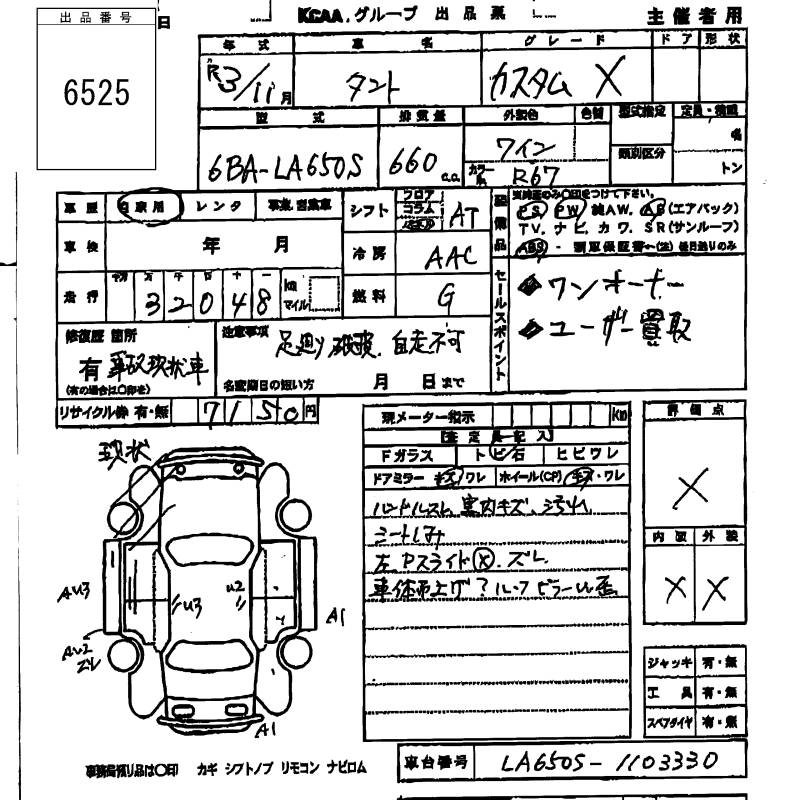 出品番号
6525
日
KCAA.グループ 出品票
主催者用
年式 車名 グレード ドア 形状
R3/11月 タント カスタム X
型式 排気量 外装色 色替 型式指定 定員・積載
6BA-LA650S 660c.c. ワイン 名
カラーNo. R67 類別区分 トン
車歴 自家用 レンタ 事業 営業車
シフト フロア コラム AT
車検 年 月
冷房 AAC
走行 十万 万 千 百 十 一 km マイル
32048
燃料 G
装備品
PS PW 純AW. AB(エアバック)
TV.ナビ.カワ.SR(サンルーフ)
ABS
セールスポイント
◆ワンオーナー
◆ユーザー買取
修復歴 箇所
有 事故現状車
(有の場合は○印を)
注意事項
足廻り破損、自走不可
名変期日の短い方 月 日まで
リサイクル券 有・無 7150円
現メーター指示 km
[査定員記入]
Fガラス トビ石 ヒビワレ
ドアミラー キズ ワレ ホイール(CP) キズ・ワレ
ハンドルスレ 室内キズ、汚れ
シートしみ
左Pスライド(X)、ズレ
車体吊上げ?ルーフピラー 歪
評価点
X
内装 外装
X X
ジャッキ 有・無
工具 有・無
スペアタイヤ 有・無
現状
AU3
U3
U2
A1
AU2
ズレ
A1
事務局預り品は○印 カギ シフトノブ リモコン ナビロム
車台番号 LA650S-1103330